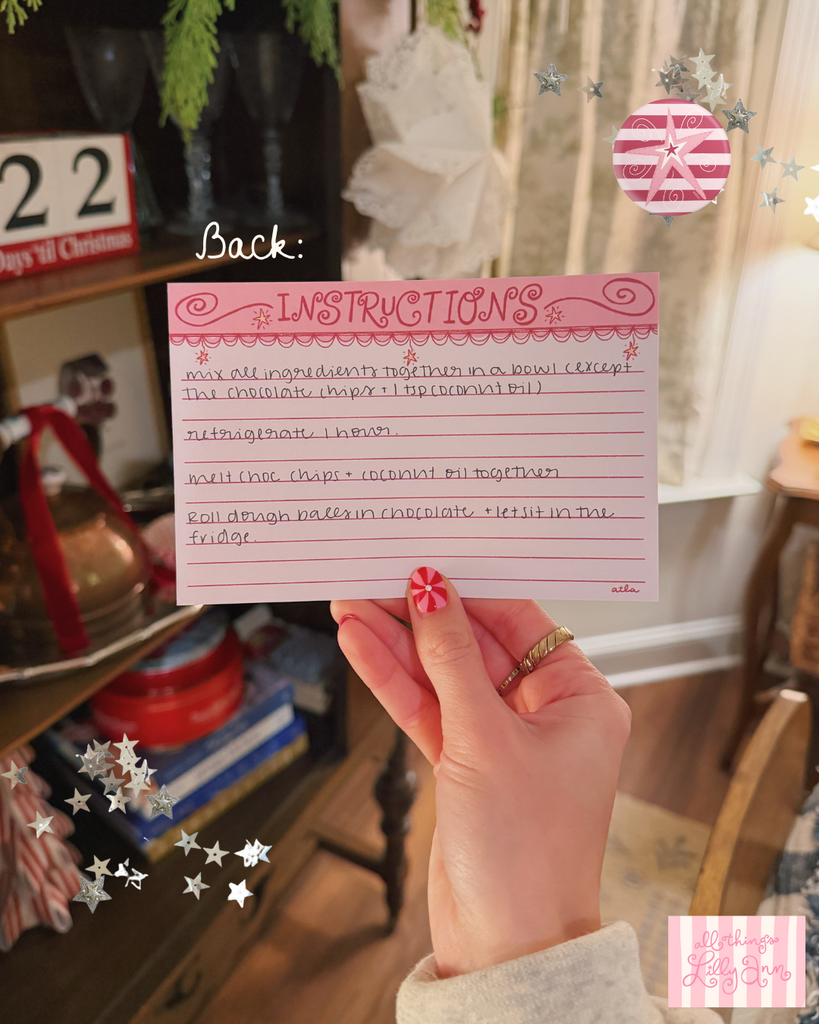 22
Days 'til Christmas
Back:
INSTRUCTIONS
mix all ingredients together in a bowl (except
the chocolate chips + 1 tsp coconut oil)
refrigerate 1 hour.
melt choc chips + coconut oil together
Roll dough balls in chocolate + let sit in the
fridge.
atla
all things
Lilly Ann